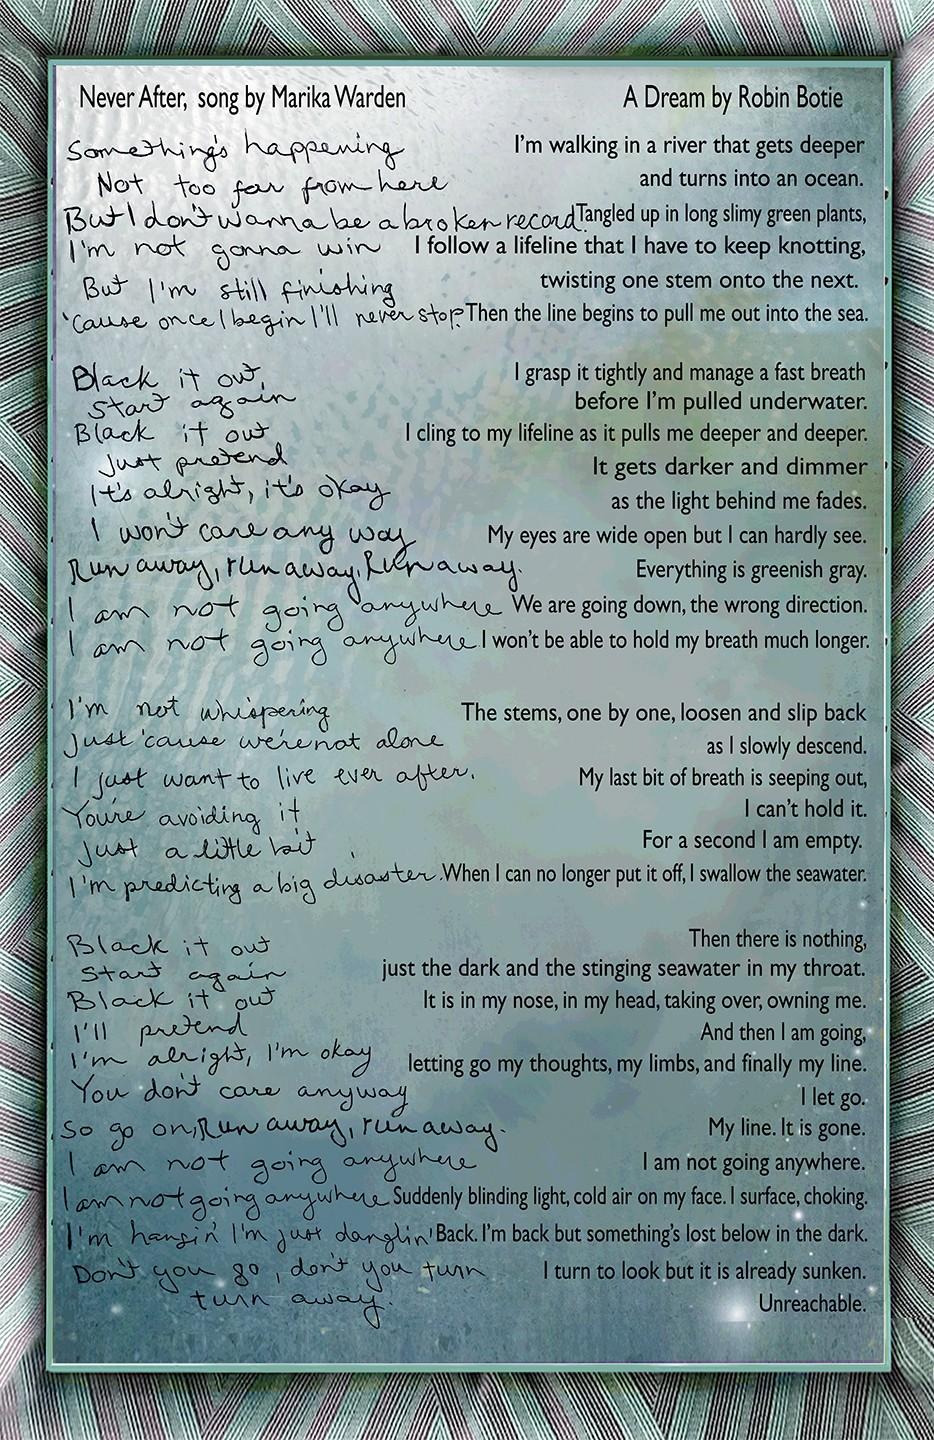 Never After, song by Marika Warden
Something's happening
Not too far from here
But I don't wanna be a broken record.
I'm not gonna win
But I'm still finishing
'Cause once I begin I'll never stop?
Black it out,
Start again
Black it out
Just pretend
It's alright, it's okay
I won't care any way
Run away, run away, Run away.
I am not going anywhere
I am not going anywhere.
I'm not whispering
Just 'cause we're not alone
I just want to live ever after.
You're avoiding it
Just a little bit
I'm predicting a big disaster.
Black it out
Start again
Black it out
I'll pretend
I'm alright, I'm okay
You don't care anyway
So go on, Run away, run away.
I am not going anywhere
I am not going anywhere
I'm hangin' I'm just danglin'
Don't you go, don't you turn
turn away.
A Dream by Robin Botie
I'm walking in a river that gets deeper
and turns into an ocean.
Tangled up in long slimy green plants,
I follow a lifeline that I have to keep knotting,
twisting one stem onto the next.
Then the line begins to pull me out into the sea.
I grasp it tightly and manage a fast breath
before I'm pulled underwater.
I cling to my lifeline as it pulls me deeper and deeper.
It gets darker and dimmer
as the light behind me fades.
My eyes are wide open but I can hardly see.
Everything is greenish gray.
We are going down, the wrong direction.
I won't be able to hold my breath much longer.
The stems, one by one, loosen and slip back
as I slowly descend.
My last bit of breath is seeping out,
I can't hold it.
For a second I am empty.
When I can no longer put it off, I swallow the seawater.
Then there is nothing,
just the dark and the stinging seawater in my throat.
It is in my nose, in my head, taking over, owning me.
And then I am going,
letting go my thoughts, my limbs, and finally my line.
I let go.
My line. It is gone.
I am not going anywhere.
Suddenly blinding light, cold air on my face. I surface, choking.
Back. I'm back but something's lost below in the dark.
I turn to look but it is already sunken.
Unreachable.